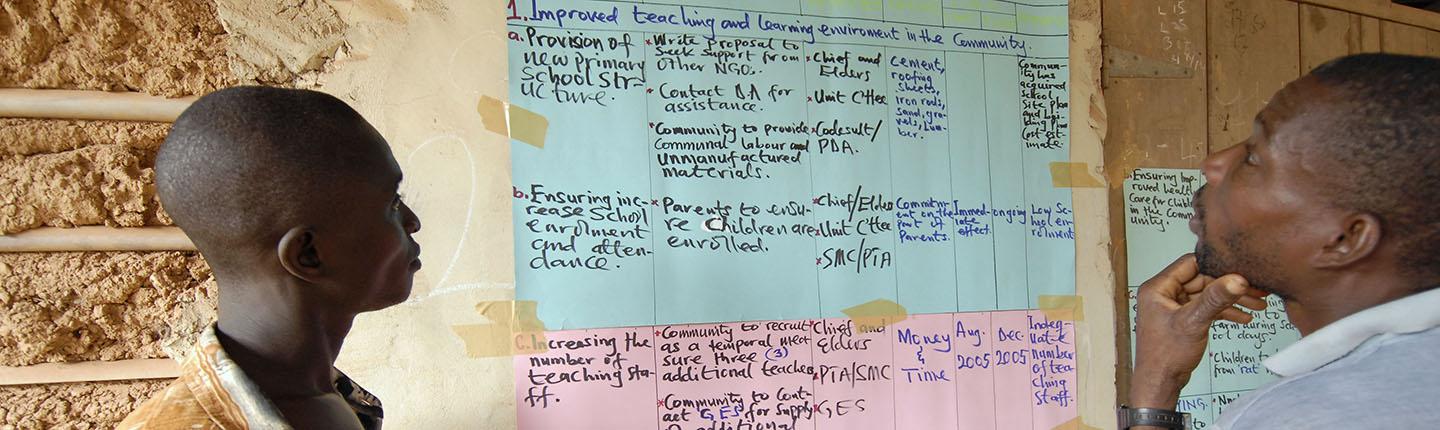 1. Improved teaching and learning enviroment in the Community.
a. Provision of
new primary
School str-
ucture.
* Write proposal to
seek support from
other NGOs.
* Contact DA for
assistance.
* Community to provide
Communal labour and
unmanufactured
materials.
* Chief and
Elders
* Unit C'ttee
* Codesult/
PDA.
Cement,
roofing
sheets,
Iron rods,
sand, gra-
vels, Lum-
ber.
Commun-
ity has
acquired
school
Site plan
and
Cost est-
imate.
b. Ensuring inc-
rease School
enrolment
and atten-
dance.
* Parents to ensu-
re Children are
enrolled.
* Chief/Elders
* Unit C'ttee
* SMC/PTA
Commitm-
ent on the
part of
Parents.
Immed-
iate
effect.
ongoing
Low Sc-
hool en-
rolment
C. Increasing the
number of
teaching sta-
ff.
* Community to recruit
as a temporal mea
sure three (3)
additional teachers
* Community to Cont-
act GES for Supply
additional
Chief and
Elders
* PTA/SMC
* GES
Money
&
Time
Aug.
2005
Dec.
2005
Inadeq-
uate
number
of tea-
ching
Staff.
b. Ensuring Imp-
roved health
Care for Childr
in the Comm-
unity.
farm during Sc
ool days.
* Children to
from 'rat'